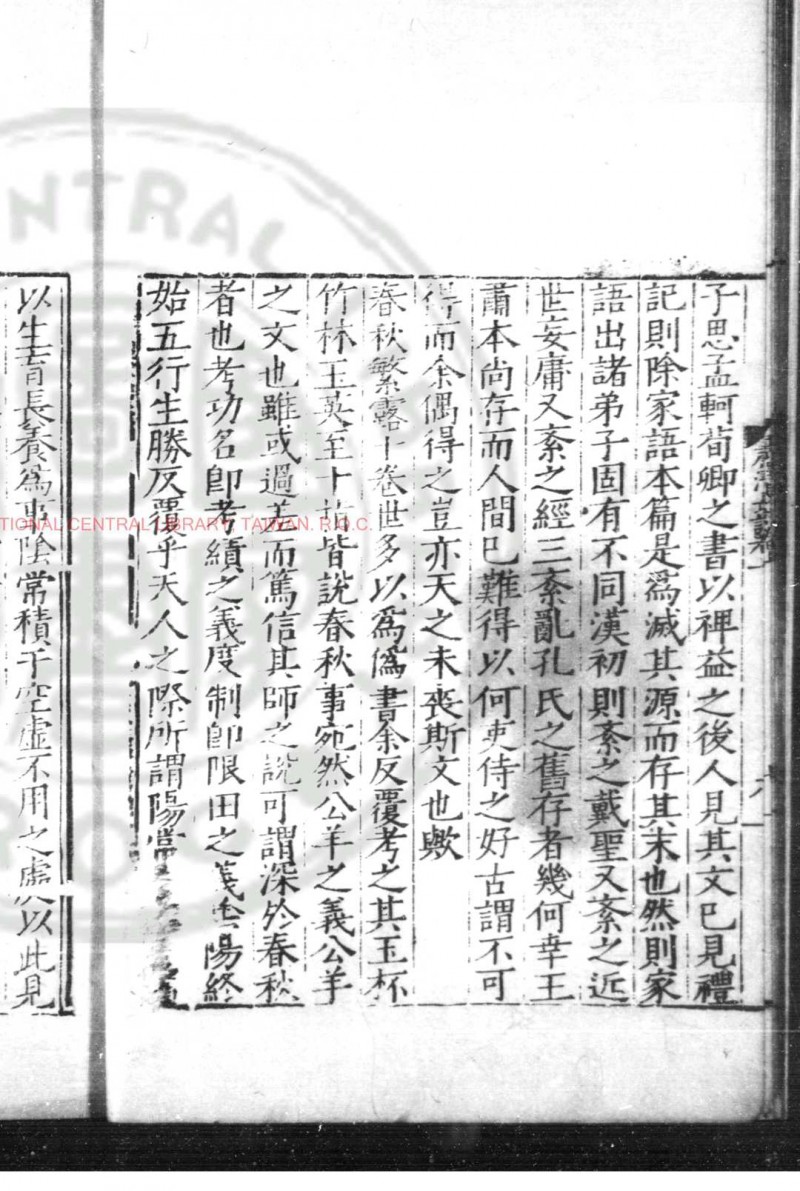 子思孟軻荀卿之書以裨益之後人見其文巳見禮
記則除家語本篇是為滅其源而存其末也然則家
語出諸弟子固有不同漢初則紊之戴聖又紊之近
世妄庸又紊之經三紊亂孔氏之舊存者幾何幸王
肅本尚存而人間巳難得以何吏侍之好古謂不可
得而余偶得之豈亦天之未喪斯文也歟
春秋繁露十卷世多以為偽書余反覆考之其玉杯
竹林玉英至十指皆說春秋事宛然公羊之義公羊
之文也雖或過差而篤信其師之說可謂深於春秋
者也考功名即考績之義度制即限田之義陰陽終
始五行生勝反覆乎天人之際所謂陽常
以生育長養為事陰常積于空虛不用之處以此見
NATIONAL CENTRAL LIBRARY, TAIWAN. R.O.C.
CENTRAL